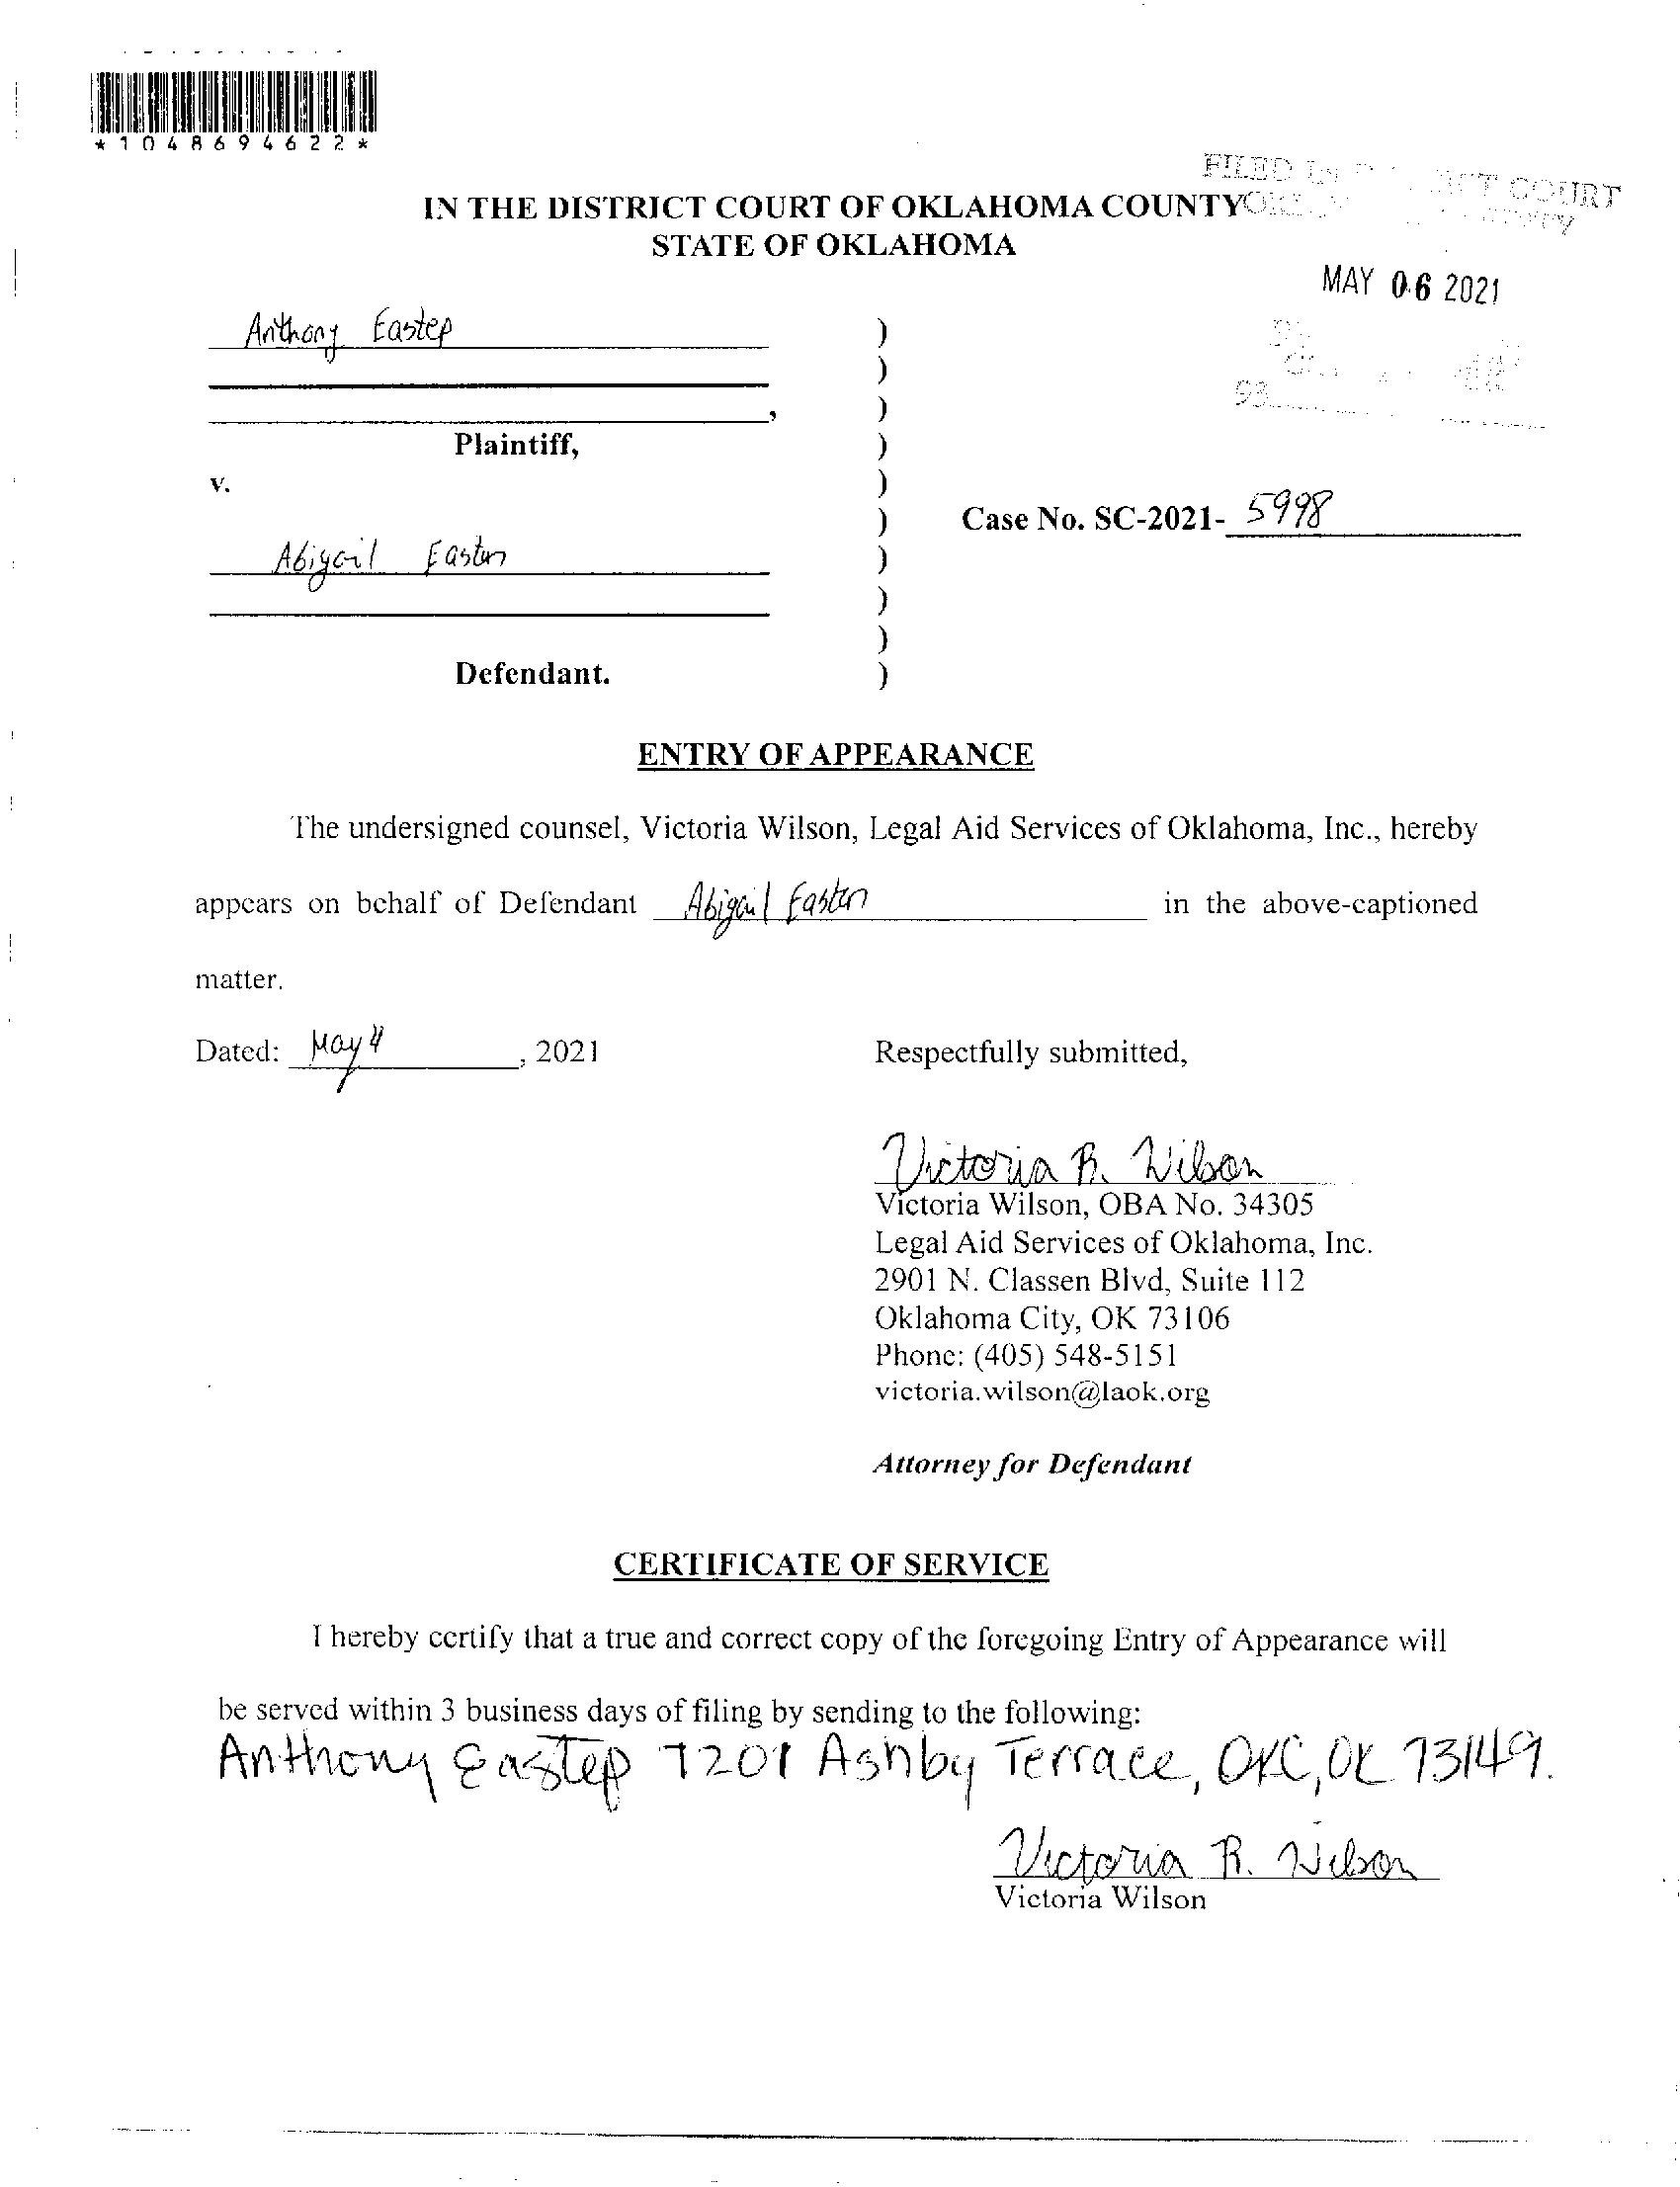 *1048694622*
FILED COURT
IN THE DISTRICT COURT OF OKLAHOMA COUNTY
STATE OF OKLAHOMA
MAY 06 2021
Anthony Eastep )
)
, )
Plaintiff, )
v. )
) Case No. SC-2021- 5998
Abigail )
)
)
Defendant. )
ENTRY OF APPEARANCE
The undersigned counsel, Victoria Wilson, Legal Aid Services of Oklahoma, Inc., hereby
appears on behalf of Defendant Abigail in the above-captioned
matter.
Dated: May 4, 2021 Respectfully submitted,
Victoria R. Wilson
Victoria Wilson, OBA No. 34305
Legal Aid Services of Oklahoma, Inc.
2901 N. Classen Blvd, Suite 112
Oklahoma City, OK 73106
Phone: (405) 548-5151
victoria.wilson@laok.org
Attorney for Defendant
CERTIFICATE OF SERVICE
I hereby certify that a true and correct copy of the foregoing Entry of Appearance will
be served within 3 business days of filing by sending to the following:
Anthony Eastep 7201 Ashby Terrace, OKC, OK 73149.
Victoria R. Wilson
Victoria Wilson